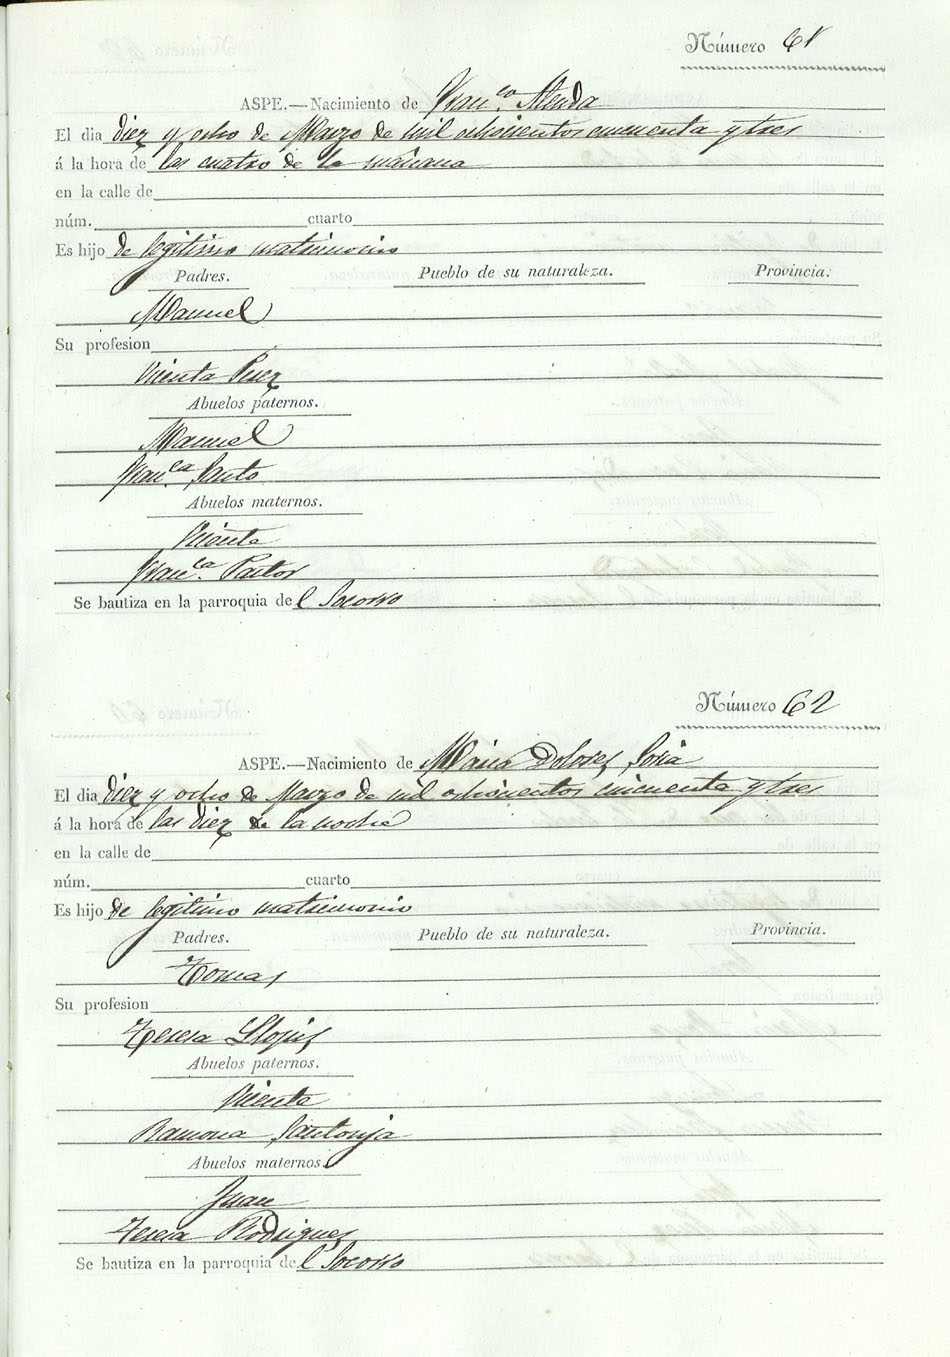 Número 61
ASPE.—Nacimiento de Fran.co Alenda
El dia diez y ocho de Marzo de mil ochocientos cincuenta y tres
á la hora de las cuatro de la mañana
en la calle de
núm. cuarto
Es hijo de legitimo matrimonio
Padres. Pueblo de su naturaleza. Provincia.
Manuel
Su profesion
Vicenta Perez
Abuelos paternos.
Manuel
Fran.ca Santo
Abuelos maternos.
Vicente
Fran.ca Pastor
Se bautiza en la parroquia del Socorro
Número 62
ASPE.—Nacimiento de Maria Dolores Soria
El dia diez y ocho de Marzo de mil ochocientos cincuenta y tres
á la hora de las diez de la noche
en la calle de
núm. cuarto
Es hijo de legitimo matrimonio
Padres. Pueblo de su naturaleza. Provincia.
Tomas
Su profesion
Teresa Llopis
Abuelos paternos.
Vicente
Ramona Santonja
Abuelos maternos.
Juan
Teresa Rodriguez
Se bautiza en la parroquia del Socorro